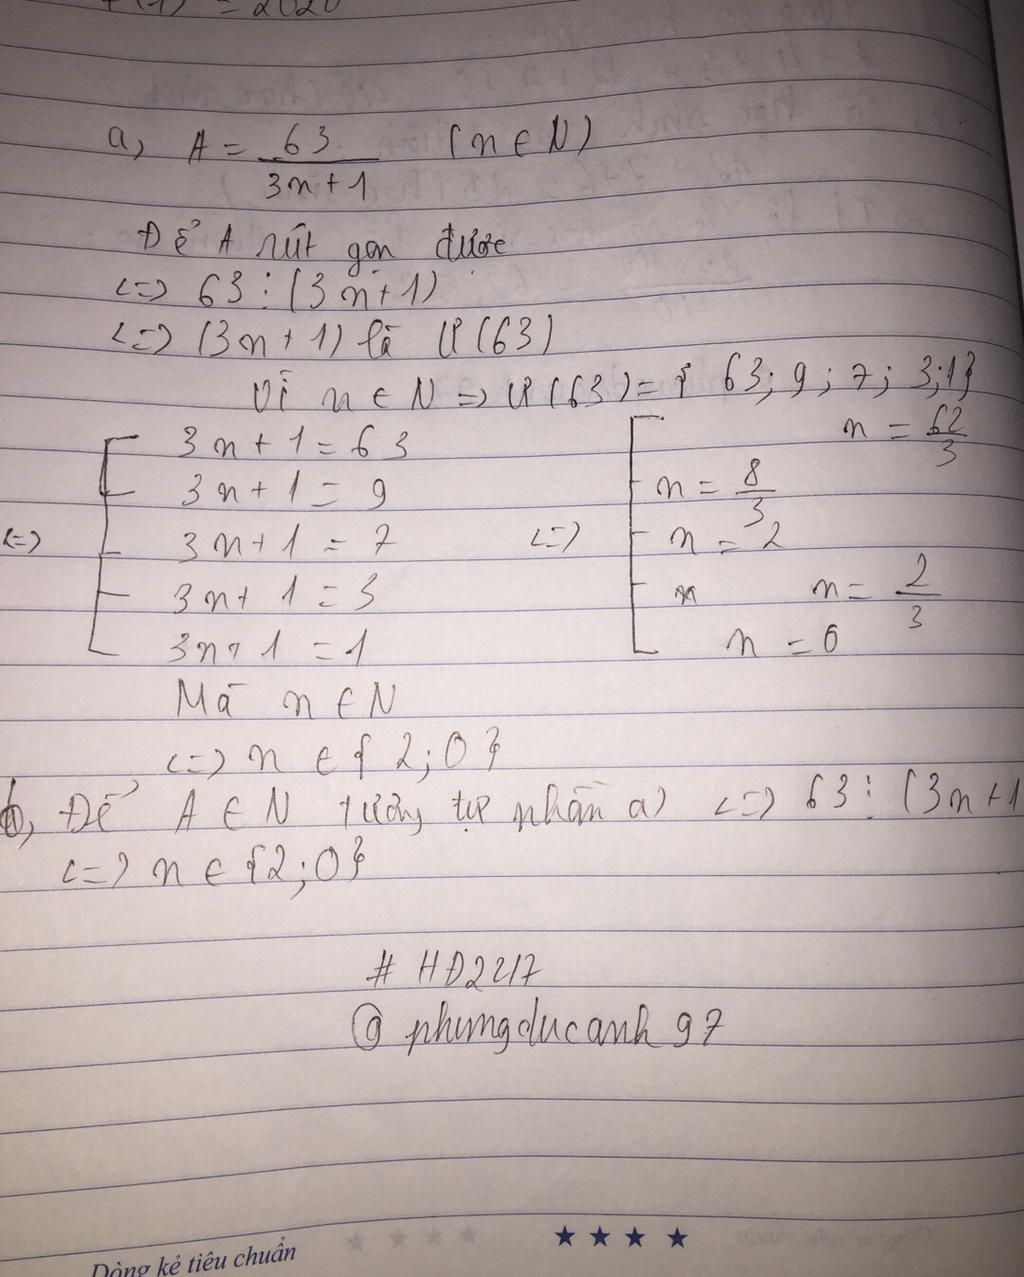 (1) = 2020
a, A = 63/(3n + 1) (n ∈ N)
Để A rút gọn được
<=> 63 ⋮ (3n+1)
<=> (3n + 1) là Ư(63)
Vì n ∈ N => Ư(63) = { 63; 9; 7; 3; 1}
<=> [ 3n + 1 = 63 <=> [ n = 62/3
3n + 1 = 9 n = 8/3
3n + 1 = 7 n = 2
3n + 1 = 3 n = 2/3
3n + 1 = 1 n = 0
Mà n ∈ N
<=> n ∈ { 2; 0 }
b, Để A ∈ N tương tự nhần a) <=> 63 ⋮ (3n+1
<=> n ∈ {2; 0}
# HD2217
@ phungducanh 97
Dòng kẻ tiêu chuẩn ★ ★ ★ ★